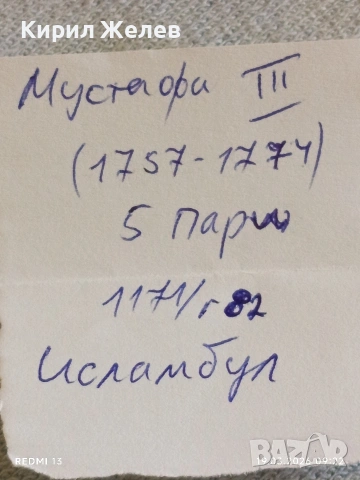 Кирил Желев
Мустафи III
(1757-1774)
5 Пари
1171/г 82
Исламбул
REDMI 13
19.03.2026 09:22
BAZAR